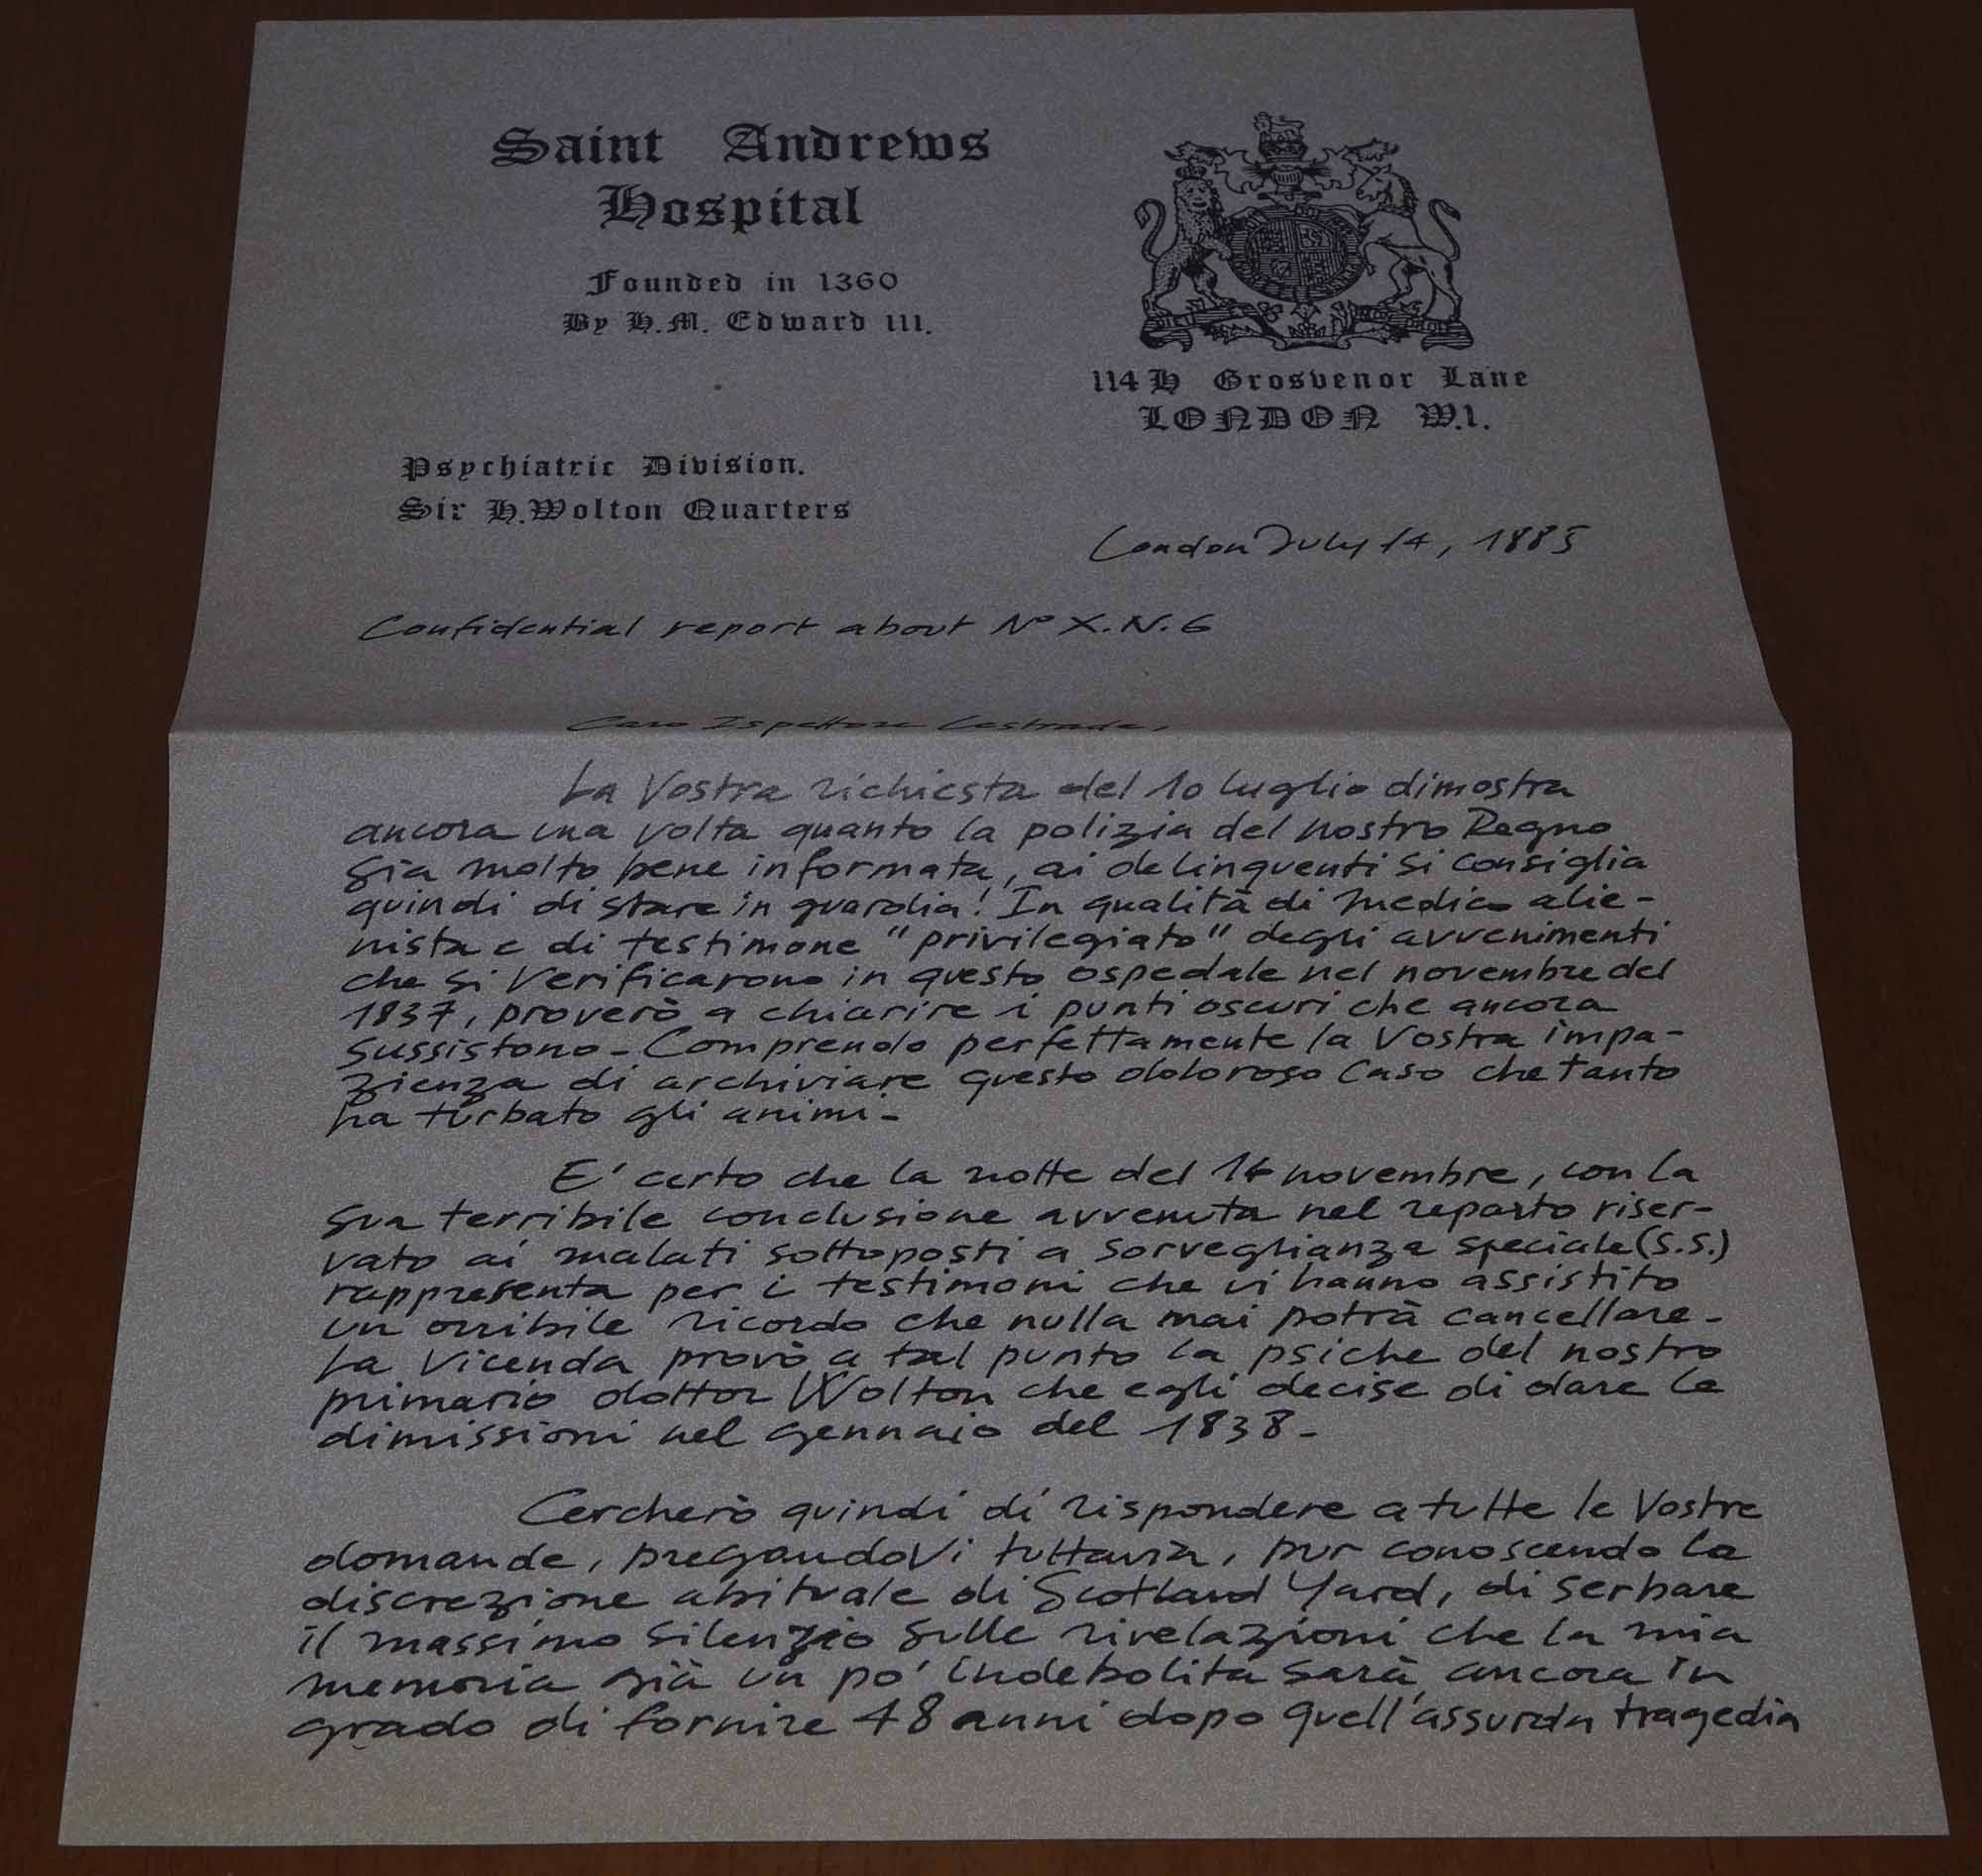 Saint Andrews
Hospital
Founded in 1360
By H.M. Edward III.
114 H Grosvenor Lane
LONDON W.1.
Psychiatric Division.
Sir H.Wolton Quarters
London July 14, 1885
Confidential report about N° X.N.6
Caro Ispettore Lestrade,
La Vostra richiesta del 10 luglio dimostra
ancora una volta quanto la polizia del nostro Regno
sia molto bene informata, ai delinquenti si consiglia
quindi di stare in guardia! In qualità di medico alie-
nista e di testimone "privilegiato" degli avvenimenti
che si verificarono in questo ospedale nel novembre del
1837, proverò a chiarire i punti oscuri che ancora
sussistono - Comprendo perfettamente la Vostra impa-
zienza di archiviare questo doloroso caso che tanto
ha turbato gli animi -
E' certo che la notte del 14 novembre, con la
sua terribile conclusione avvenuta nel reparto riser-
vato ai malati sottoposti a sorveglianza speciale (S.S.)
rappresenta per i testimoni che vi hanno assistito
un orribile ricordo che nulla mai potrà cancellare -
La vicenda provò a tal punto la psiche del nostro
primario dottor Wolton che egli decise di dare le
dimissioni nel gennaio del 1838 -
Cercherò quindi di rispondere a tutte le Vostre
domande, pregandoVi tuttavia, pur conoscendo la
discrezione abituale di Scotland Yard, di serbare
il massimo silenzio sulle rivelazioni che la mia
memoria già un po' indebolita sarà ancora in
grado di fornire 48 anni dopo quell'assurda tragedia